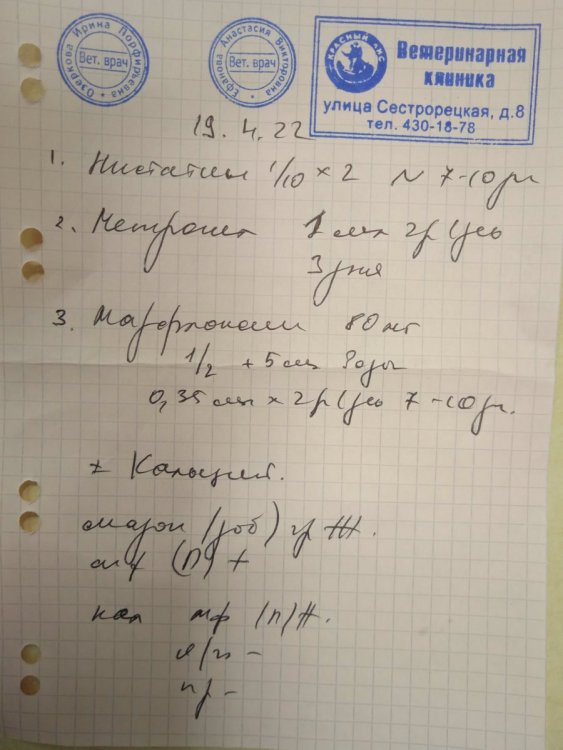 Озеркова Ирина Порфирьевна
Вет. врач
Ефанова Анастасия Викторовна
Вет. врач
КРАСНЫЙ ПЁС
Ветеринарная
клиника
улица Сестрорецкая, д.8
тел. 430-18-78
19.4.22
1. Нистатин 1/10 × 2 N 7-10 дн
2. 1 мл 2р/день
3 дня
3. Марфлоксин 80 мг
1/2 + 5 мл воды
0,35 мл × 2р/день 7-10 дн.
+ Кальций.
мазок (зоб) гр
(п) +
кал мф (п)
я/г -
пр -